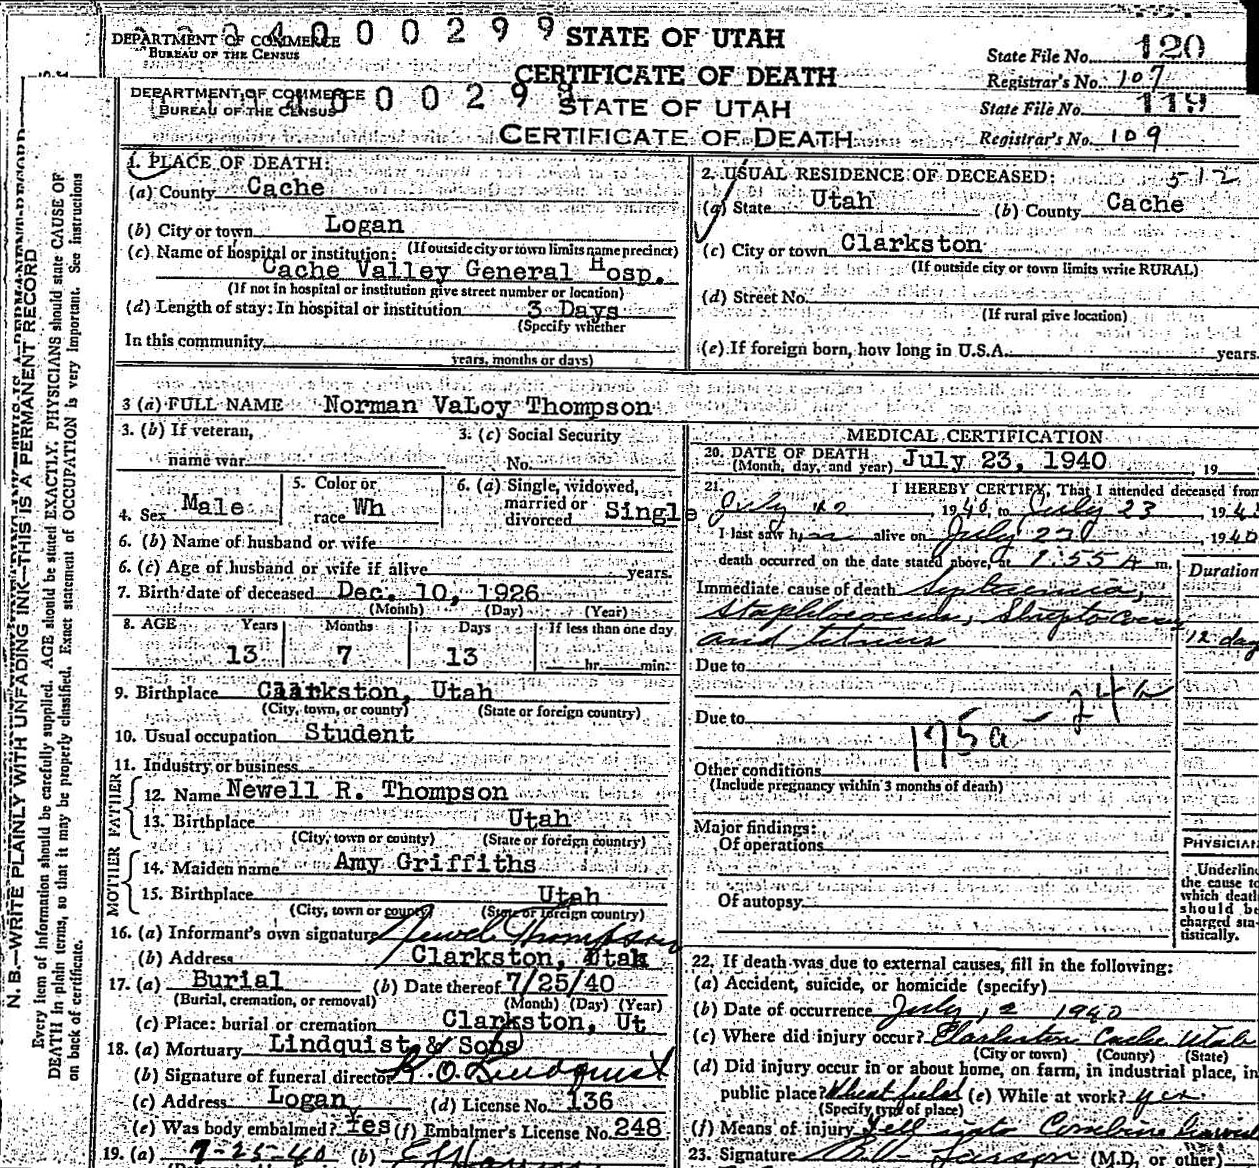 DEPARTMENT OF COMMERCE
BUREAU OF THE CENSUS
4 0 0 0 2 9 9
STATE OF UTAH
CERTIFICATE OF DEATH
State File No. 120
Registrar's No. 107
DEPARTMENT OF COMMERCE
BUREAU OF THE CENSUS
4 0 0 0 2 9 9
STATE OF UTAH
CERTIFICATE OF DEATH
State File No. 119
Registrar's No. 109
N. B.—WRITE PLAINLY WITH UNFADING INK—THIS IS A PERMANENT RECORD
Every item of information should be carefully supplied. AGE should be stated EXACTLY. PHYSICIANS should state CAUSE OF
DEATH in plain terms, so that it may be properly classified. Exact statement of OCCUPATION is very important. See instructions
on back of certificate.
1. PLACE OF DEATH:
(a) County Cache
(b) City or town Logan
(If outside city or town limits name precinct)
(c) Name of hospital or institution:
Cache Valley General Hosp.
(If not in hospital or institution give street number or location)
(d) Length of stay: In hospital or institution 3 Days
(Specify whether
In this community
years, months or days)
2. USUAL RESIDENCE OF DECEASED: 512
(a) State Utah (b) County Cache
(c) City or town Clarkston
(If outside city or town limits write RURAL)
(d) Street No.
(If rural give location)
(e) If foreign born, how long in U.S.A. years.
3 (a) FULL NAME Norman VaLoy Thompson
3. (b) If veteran, 3. (c) Social Security
name war No.
4. Sex Male 5. Color or race Wh 6. (a) Single, widowed, married or divorced Single
6. (b) Name of husband or wife
6. (c) Age of husband or wife if alive years.
7. Birth date of deceased Dec. 10, 1926
(Month) (Day) (Year)
8. AGE Years Months Days If less than one day
13 7 13 hr. min.
9. Birthplace Clarkston, Utah
(City, town, or county) (State or foreign country)
10. Usual occupation Student
11. Industry or business
FATHER
12. Name Newell R. Thompson
13. Birthplace Utah
(City, town or county) (State or foreign country)
MOTHER
14. Maiden name Amy Griffiths
15. Birthplace Utah
(City, town or county) (State or foreign country)
16. (a) Informant's own signature Newel Thompson
(b) Address Clarkston, Utah
17. (a) Burial (b) Date thereof 7/25/40
(Burial, cremation, or removal) (Month) (Day) (Year)
(c) Place: burial or cremation Clarkston, Ut
18. (a) Mortuary Lindquist & Sons
(b) Signature of funeral director R. O. Lindquist
(c) Address Logan (d) License No. 136
(e) Was body embalmed? Yes (f) Embalmer's License No. 248
19. (a) 7-25-40 (b)
MEDICAL CERTIFICATION
20. DATE OF DEATH
(Month, day, and year) July 23, 1940, 19
21. I HEREBY CERTIFY, That I attended deceased from
July 1940, to July 23 194
I last saw h alive on July 1940
death occurred on the date stated above, at 1:55 A m.
Duration
Immediate cause of death Septicemia,
and
12 day
Due to
Due to
175a - 24
Other conditions
(Include pregnancy within 3 months of death)
Major findings:
Of operations
Of autopsy
PHYSICIAN
Underline
the cause to
which death
should be
charged sta-
tistically.
22. If death was due to external causes, fill in the following:
(a) Accident, suicide, or homicide (specify)
(b) Date of occurrence July 12 1940
(c) Where did injury occur? Clarkston Cache Utah
(City or town) (County) (State)
(d) Did injury occur in or about home, on farm, in industrial place, in
public place? Wheat field (e) While at work? yes
(Specify type of place)
(f) Means of injury Fell into Combine
23. Signature Larson (M.D. or other)